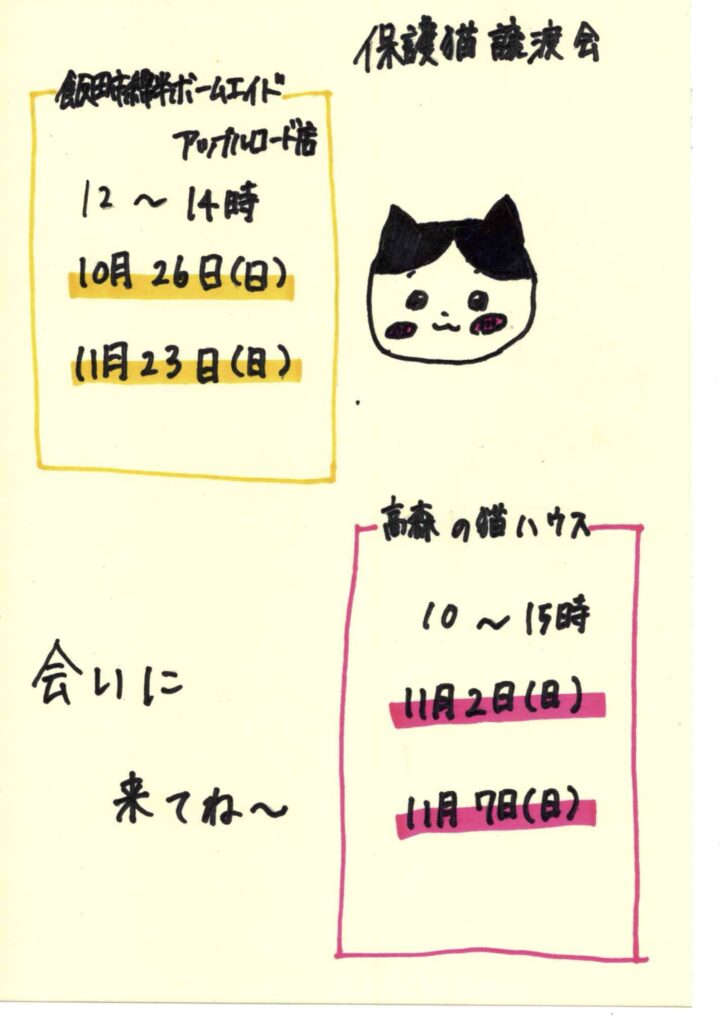 保護猫譲渡会
飯田市綿半ホームエイド
アップルロード店
12～14時
10月26日(日)
11月23日(日)
高森の猫ハウス
10～15時
11月2日(日)
11月7日(日)
会いに
来てね～